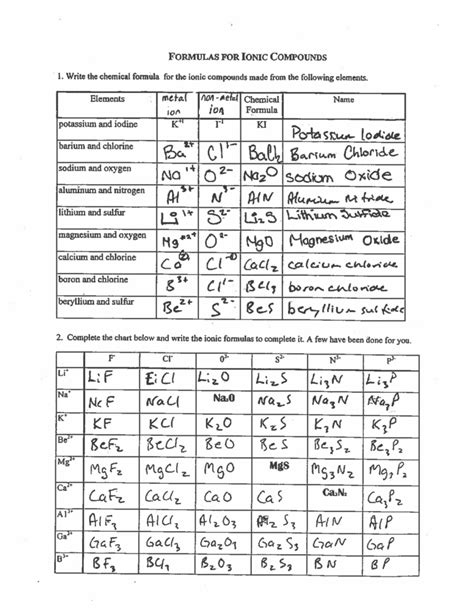 FORMULAS FOR IONIC COMPOUNDS
1. Write the chemical formula for the ionic compounds made from the following elements.
Elements metal ion non-metal ion Chemical Formula Name
potassium and iodine K⁺¹ I⁻¹ KI Potassium Iodide
barium and chlorine Ba²⁺ Cl¹⁻ BaCl₂ Barium Chloride
sodium and oxygen Na¹⁺ O²⁻ Na₂O sodium Oxide
aluminum and nitrogen Al³⁺ N³⁻ AlN Aluminum Nitride
lithium and sulfur Li¹⁺ S²⁻ Li₂S Lithium Sulfide
magnesium and oxygen Mg²⁺ O²⁻ MgO Magnesium Oxide
calcium and chlorine Ca²⁺ Cl¹⁻ CaCl₂ calcium chloride
boron and chlorine B³⁺ Cl¹⁻ BCl₃ boron chloride
beryllium and sulfur Be²⁺ S²⁻ BeS beryllium sulfide
2. Complete the chart below and write the ionic formulas to complete it. A few have been done for you.
F⁻ Cl⁻ O²⁻ S²⁻ N³⁻ P³⁻
Li⁺ LiF Li₂O Li₂S Li₃N Li₃P
Na⁺ NaCl Na₂O Na₂S Na₃N Na₃P
K⁺ KF KCl K₂O K₂S K₃N K₃P
Be²⁺ BeF₂ BeCl₂ BeO BeS Be₃P₂
Mg²⁺ MgF₂ MgCl₂ MgO MgS Mg₃N₂
Ca²⁺ CaF₂ CaCl₂ CaO CaS Ca₃N₂ Ca₃P₂
Al³⁺ AlF₃ AlCl₃ Al₂O₃ Al₂S₃ AlN AlP
Ga³⁺ GaF₃ GaCl₃ Ga₂O₃ Ga₂S₃ GaN GaP
B³⁺ BF₃ BCl₃ B₂O₃ B₂S₃ BN BP